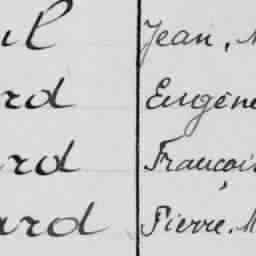 ul Jean, M
rd Eugène
rd François
ard Pierre. M